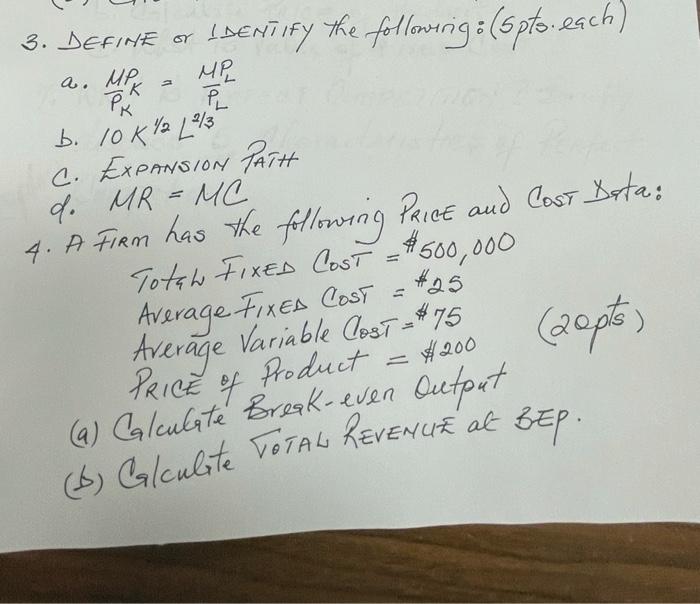 3. DEFINE or IDENTIFY the following: (5pts. each)
a. MP_K/P_K = MP_L/P_L
b. 10 K^1/2 L^2/3
C. EXPANSION PATH
d. MR = MC
4. A FIRM has the following PRICE and COST Data:
Total FIXED COST = $500,000
Average FIXED COST = $25
Average Variable COST = $75
PRICE of Product = $200 (20pts)
(a) Calculate Break-even Output
(b) Calculate TOTAL REVENUE at BEP.